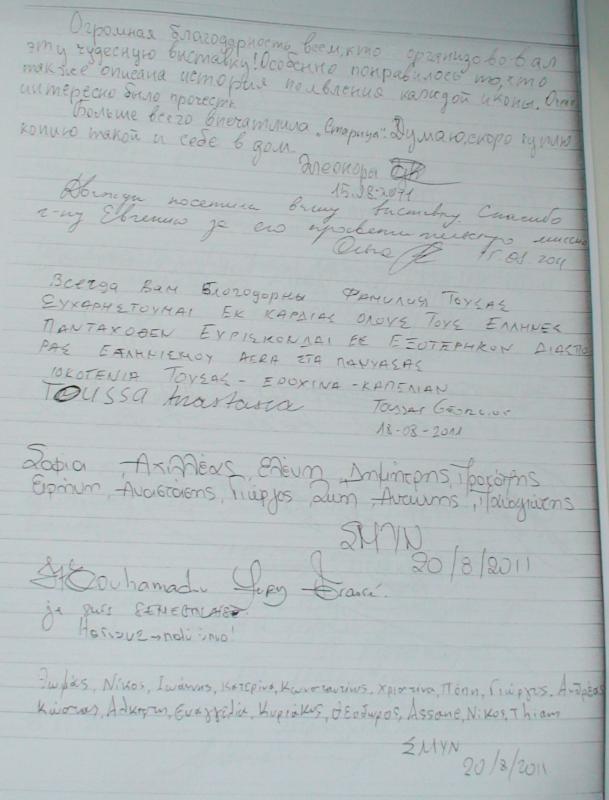 Огромная благодарность всем, кто организовавал
эту чудесную виставку! Особенно понравилось то, что
также описана история появления каждой иконы.
интересно было прочесть
Больше всего впечатлила "Старица". Думаю, скоро куплю
копию такой и себе в дом.
Элеонора
15.08.2011
посетила вашу виставку Спасибо
г-ну Евгению за его
Ольга 15.08 2011
Всегда Вам благодорны фамилия Тоусас
ΕΥΧΑΡΗΣΤΟΥΜΑΙ ΕΚ ΚΑΡΔΙΑΣ ΟΛΟΥΣ ΤΟΥΣ ΕΛΛΗΝΕΣ
ΠΑΝΤΑΧΟΘΕΝ ΕΥΡΙΣΚΟΝΔΑΙ ΕΚ ΕΞΟΤΕΡΗΚΟΝ ΔΙΑΣΠΟ
ΡΑΣ ΕΛΛΗΝΙΣΜΟΥ ΑΕRΑ ΣΤΑ ΠΑΝΥΑΣΑΣ
ΙΟΚΟΓΕΝΙΑ ΤΟΥΣΑΣ - ΕΦΟΧΙΝΑ - ΚΑΠΕΛΙΑΝ
TOUSSA Anastasia Toussas Georgios
18-08-2011
Σοφία Αχιλλέας, Ελένη, Δημήτρης,
Ειρήνη, Αναστάσης, Γιώργος, Ζωη, Αντώνης, Παναγιώτης
ΣΜΥΝ
20/8/2011
Mouhamadu
je suis
Θωμάς, Νίκος, Ιωάννης, Κατερίνα, Κωνσταντίνος, Χριστίνα, Πόπη, Γιώργος, Ανδρέας
Κώστας, Άλκηστη, Ευαγγελία, Κυριάκος, Θεόδωρος, Assane, Νίκος, Thiam
ΣΜΥΝ
20/8/2011